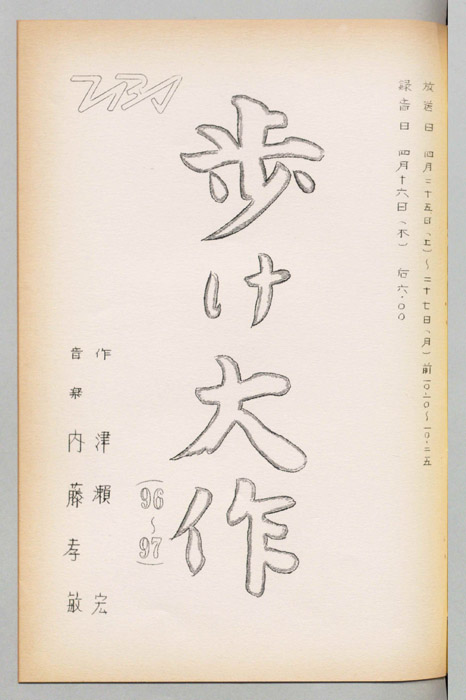 放送日 四月二十五日(土)〜二十七日(月)前一〇・一〇〜一〇・二五
録音日 四月十六日(木) 后六・〇〇
歩け大作
(96〜97)
作 津瀬宏
音楽 内藤孝敏